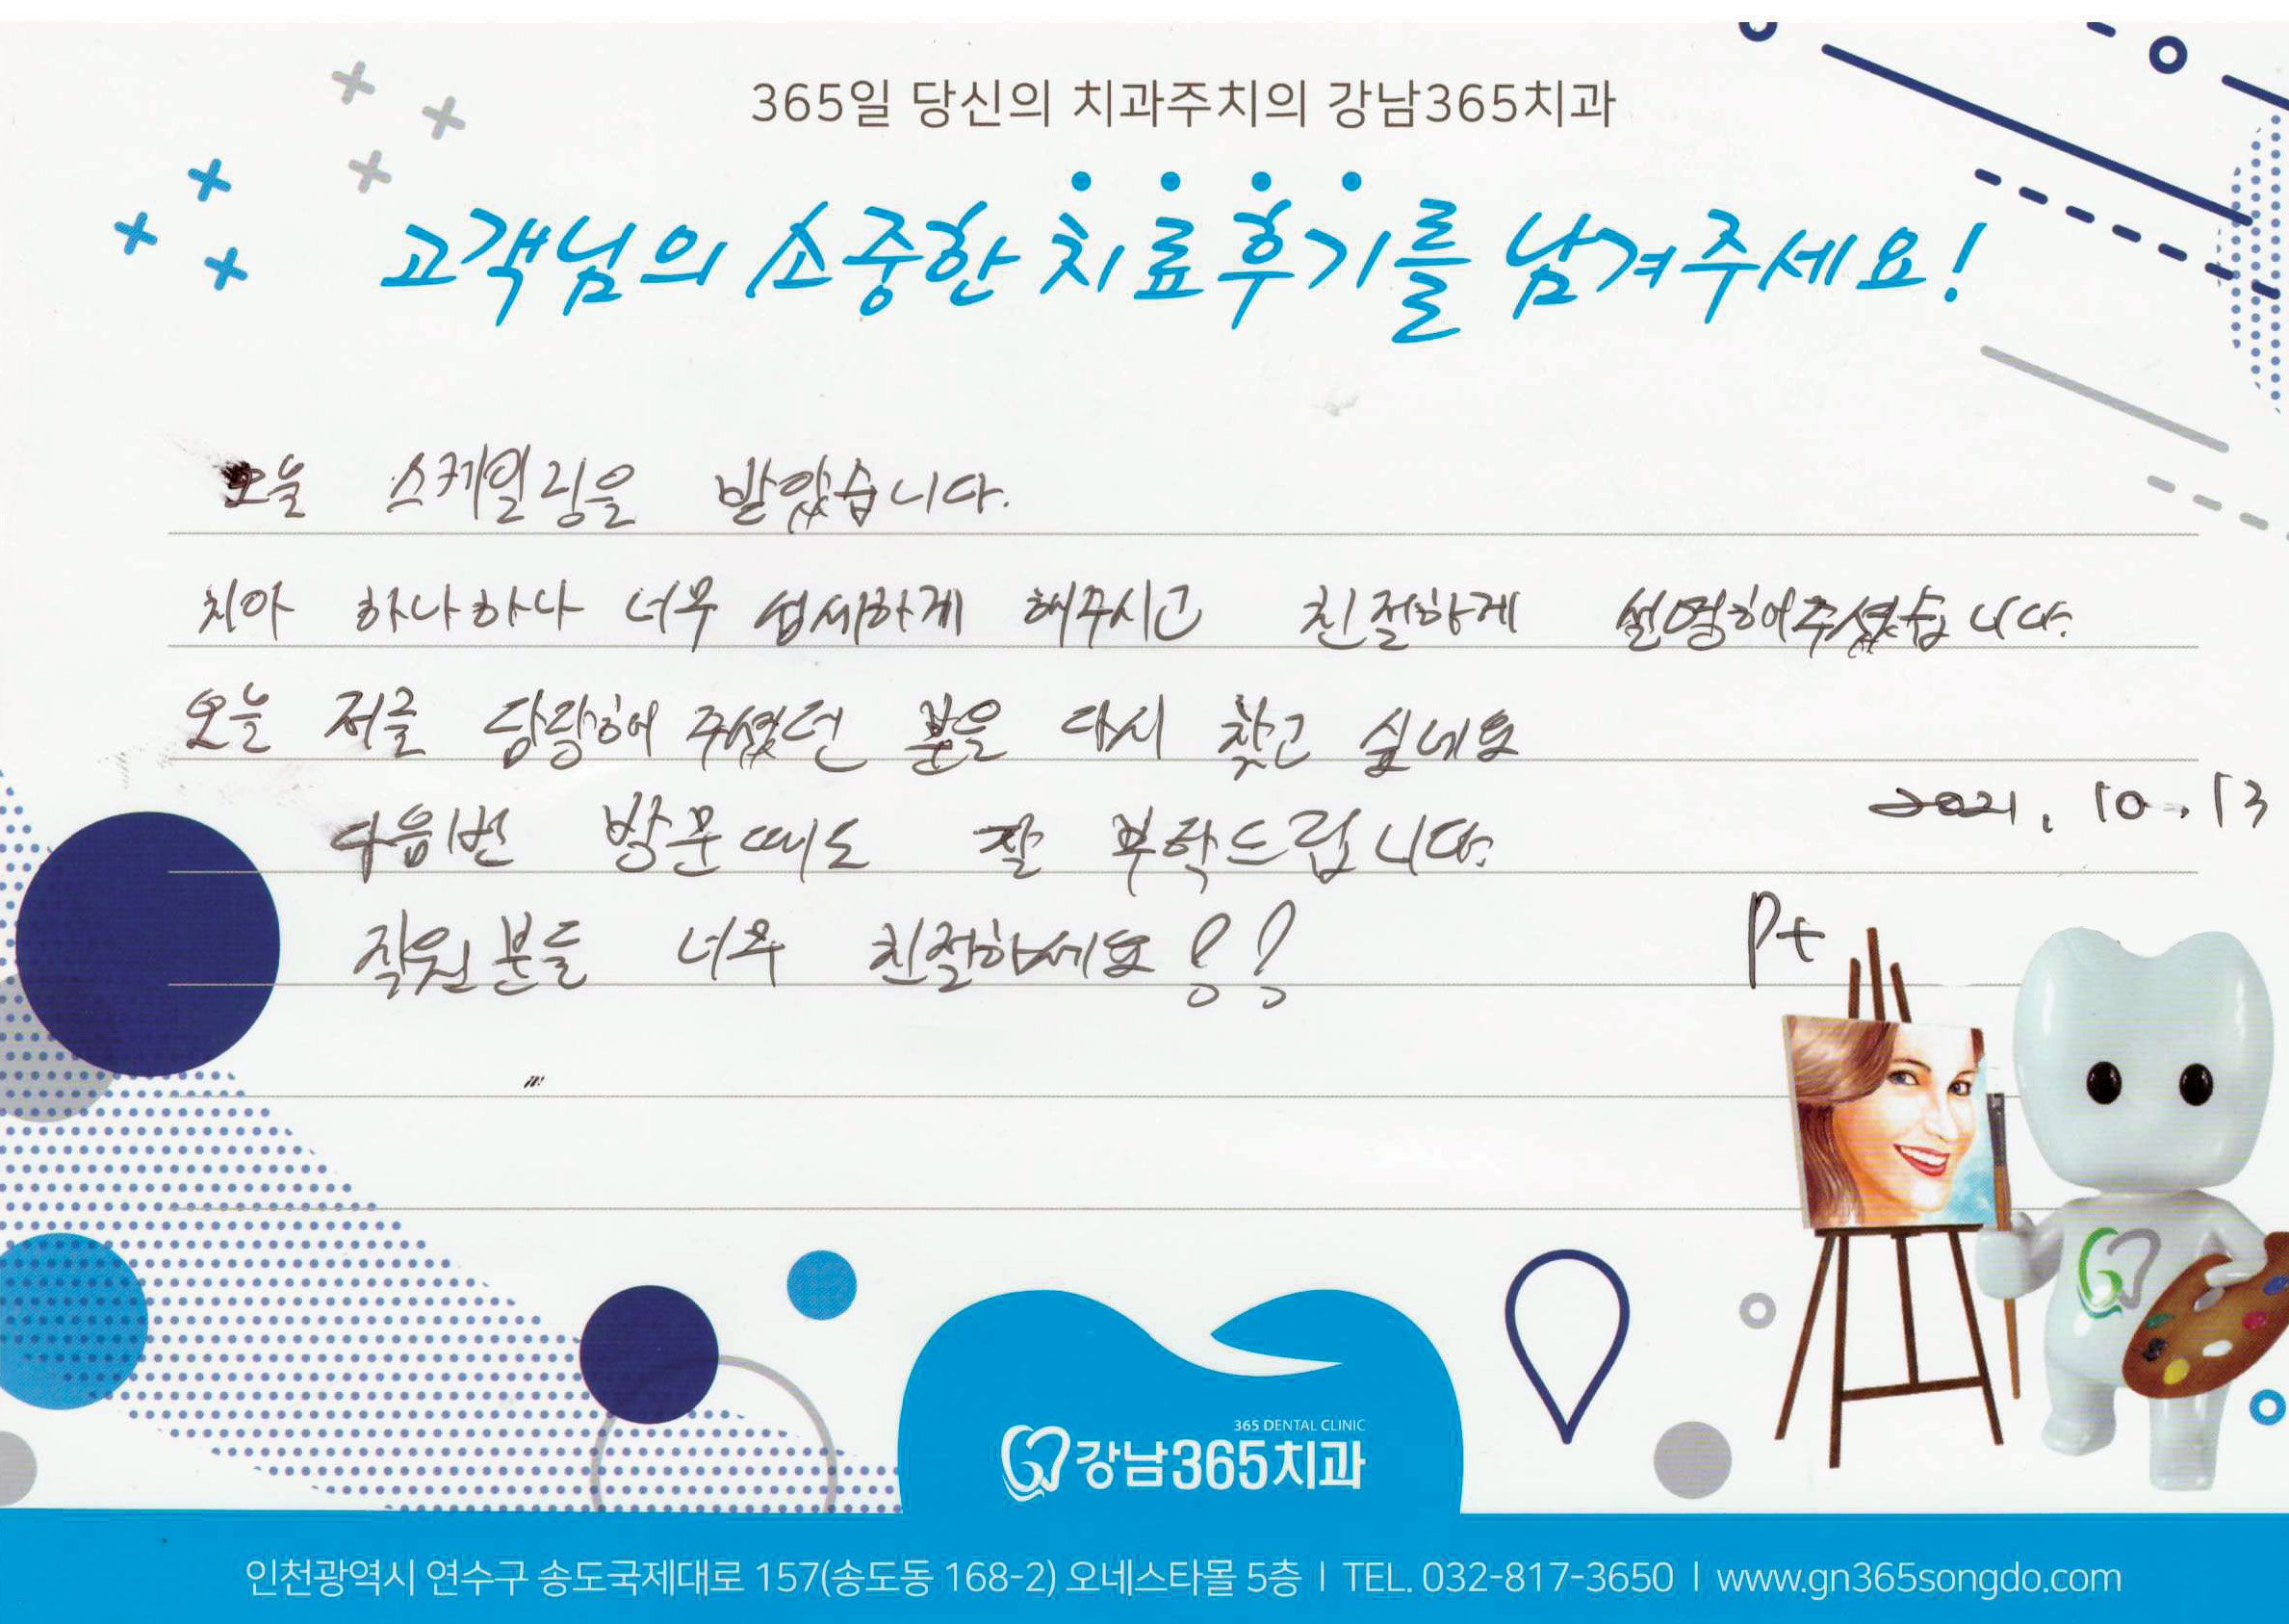 365일 당신의 치과주치의 강남365치과
고객님의 소중한 치료후기를 남겨주세요!
오늘 스케일링을 받았습니다.
치아 하나하나 너무 섬세하게 해주시고 친절하게 설명해주셨습니다.
오늘 저를 담당해 주셨던 분을 다시 찾고 싶네요
다음번 방문때도 잘 부탁드립니다.
2021. 10. 13
직원분들 너무 친절하세요!!
Pt
365 DENTAL CLINIC
강남365치과
인천광역시 연수구 송도국제대로 157(송도동 168-2) 오네스타몰 5층 | TEL. 032-817-3650 | www.gn365songdo.com